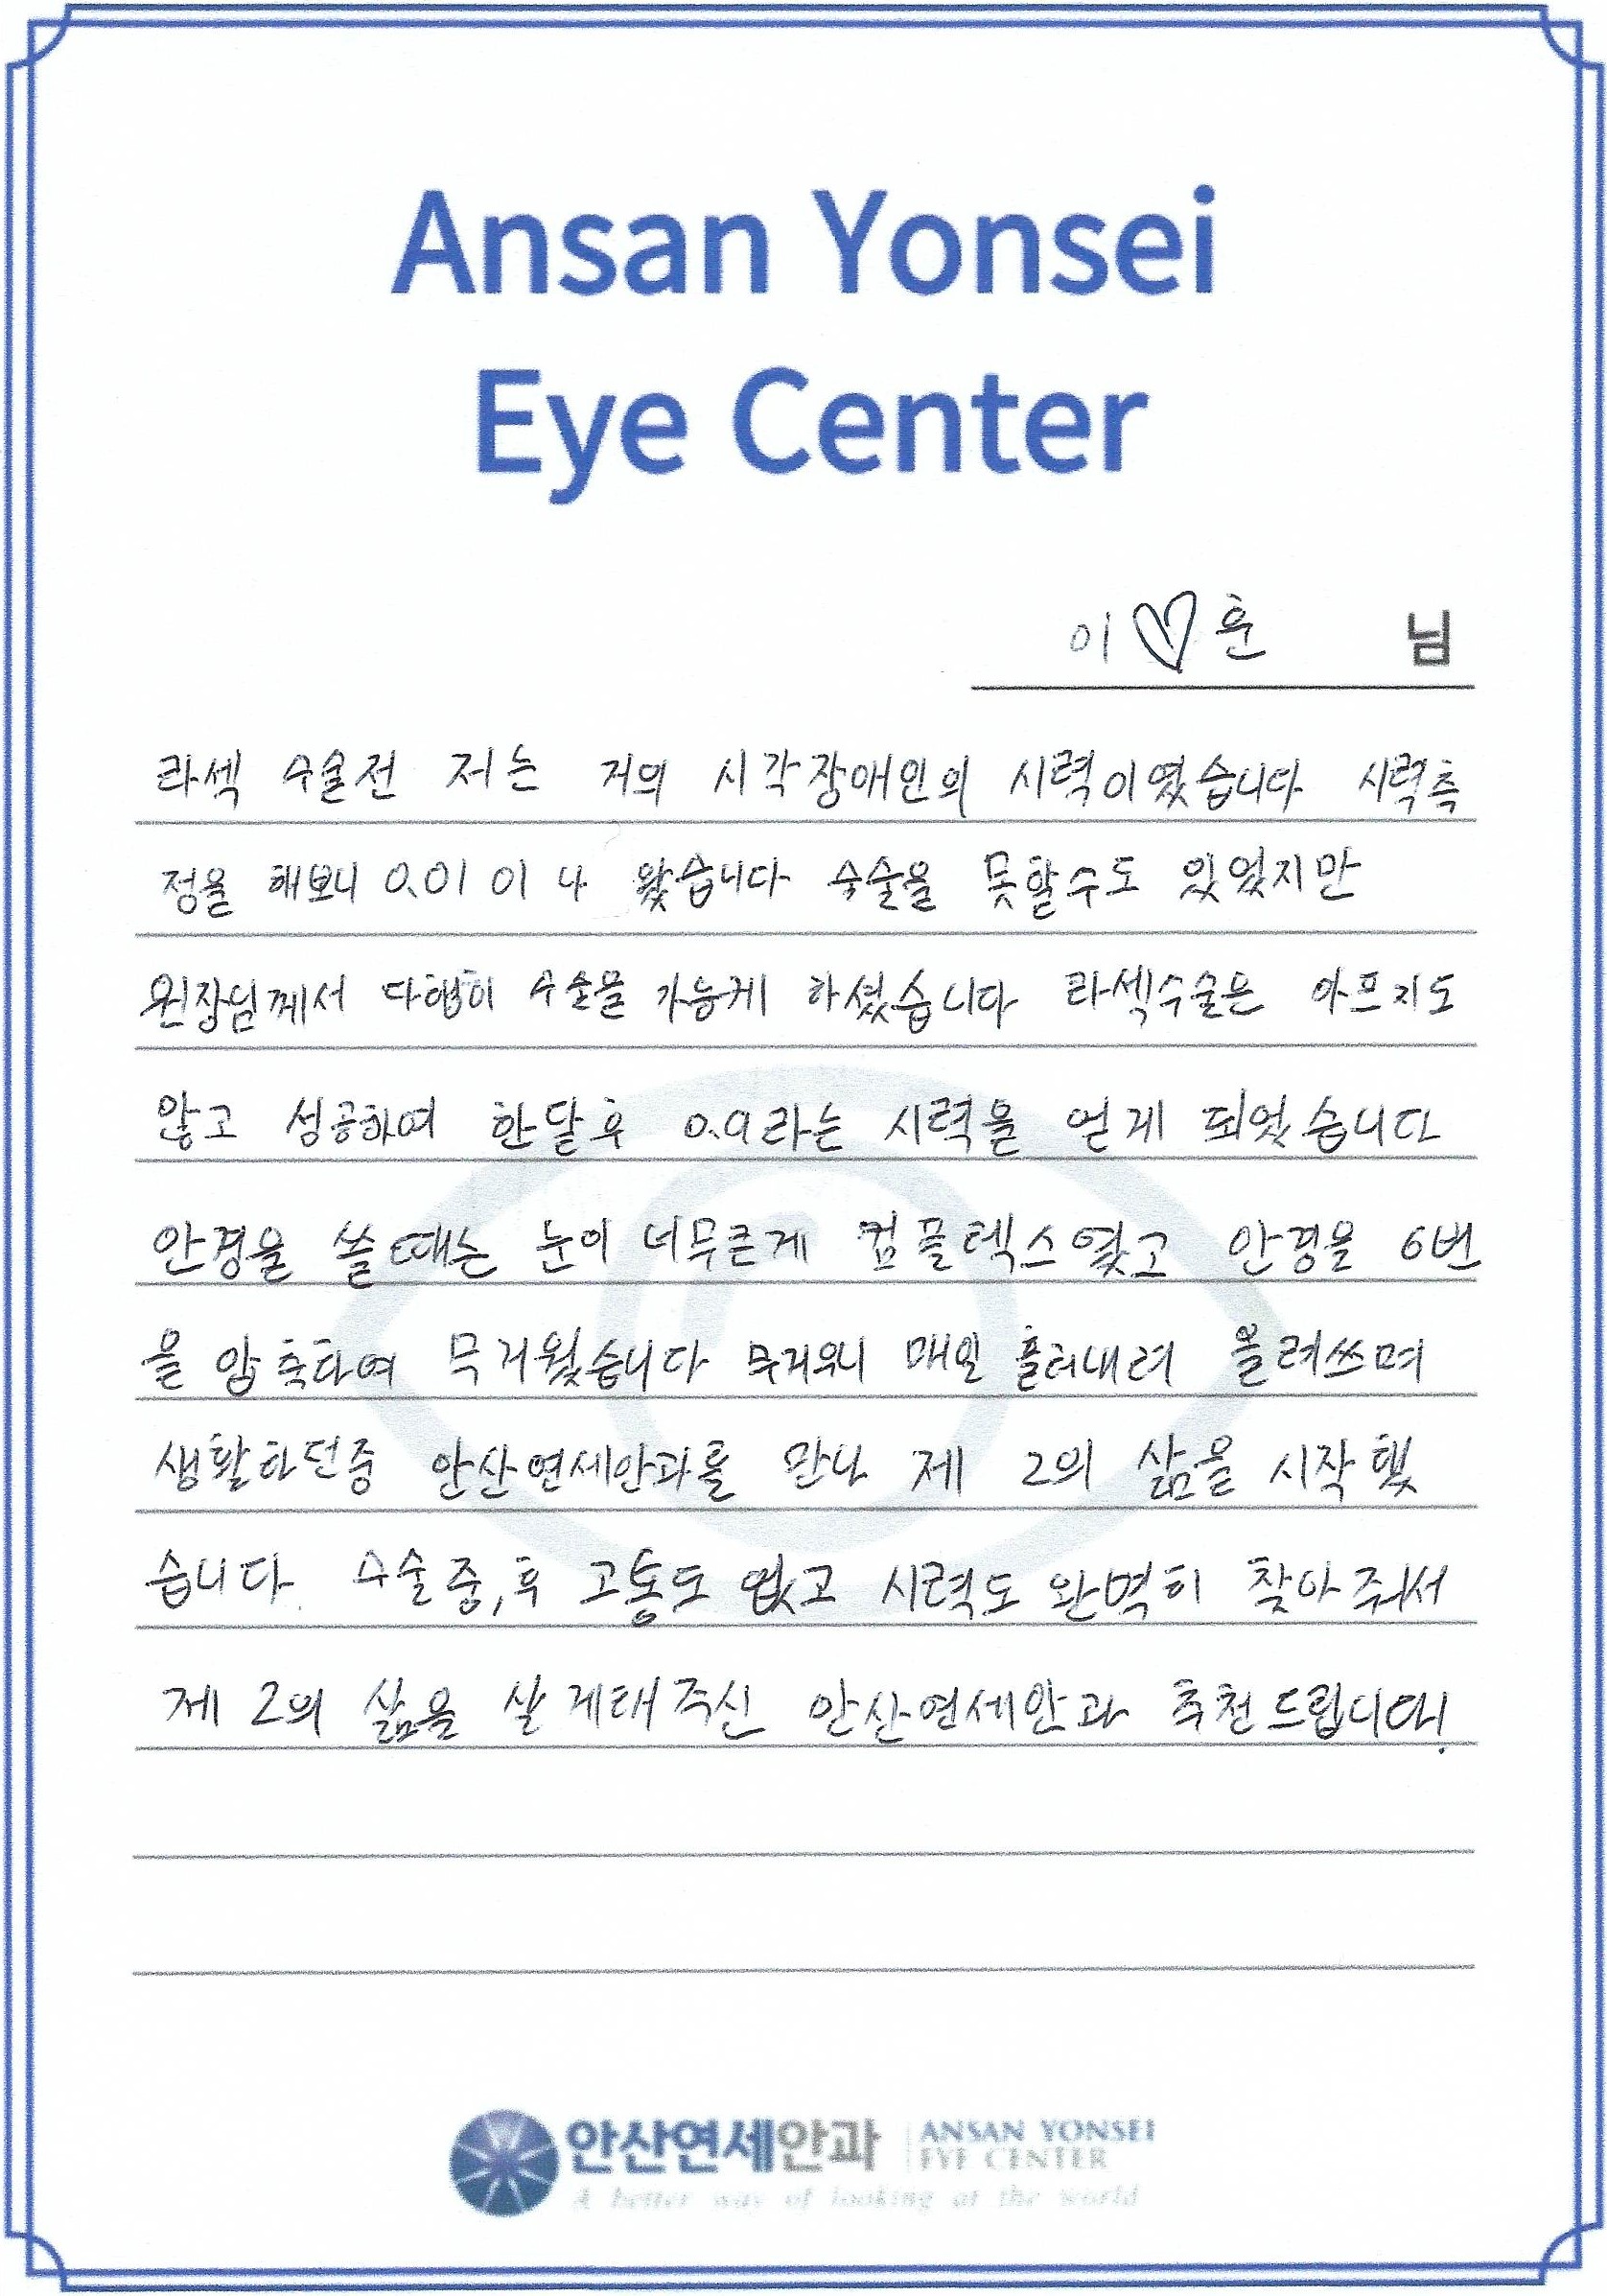 Ansan Yonsei
Eye Center
이♡훈 님
라섹 수술전 저는 거의 시각장애인의 시력이였습니다 시력측
정을 해보니 0.01 이 나 왔습니다 수술을 못할수도 있었지만
원장님께서 다행히 수술을 가능케 하셨습니다 라섹수술은 아프지도
않고 성공하여 한달후 0.9라는 시력을 얻게 되었습니다
안경을 쓸때는 눈이 너무큰게 컴플텍스였고 안경을 6번
을 압축하여 무거웠습니다 무거우니 매일 흘러내려 올려쓰며
생활하던중 안산연세안과를 만나 제 2의 삶을 시작했
습니다. 수술중,후 고통도 없고 시력도 완벽히 찾아주셔서
제 2의 삶을 살게해주신 안산연세안과 추천드립니다!
안산연세안과 ANSAN YONSEI
EYE CENTER
A better way of looking at the world